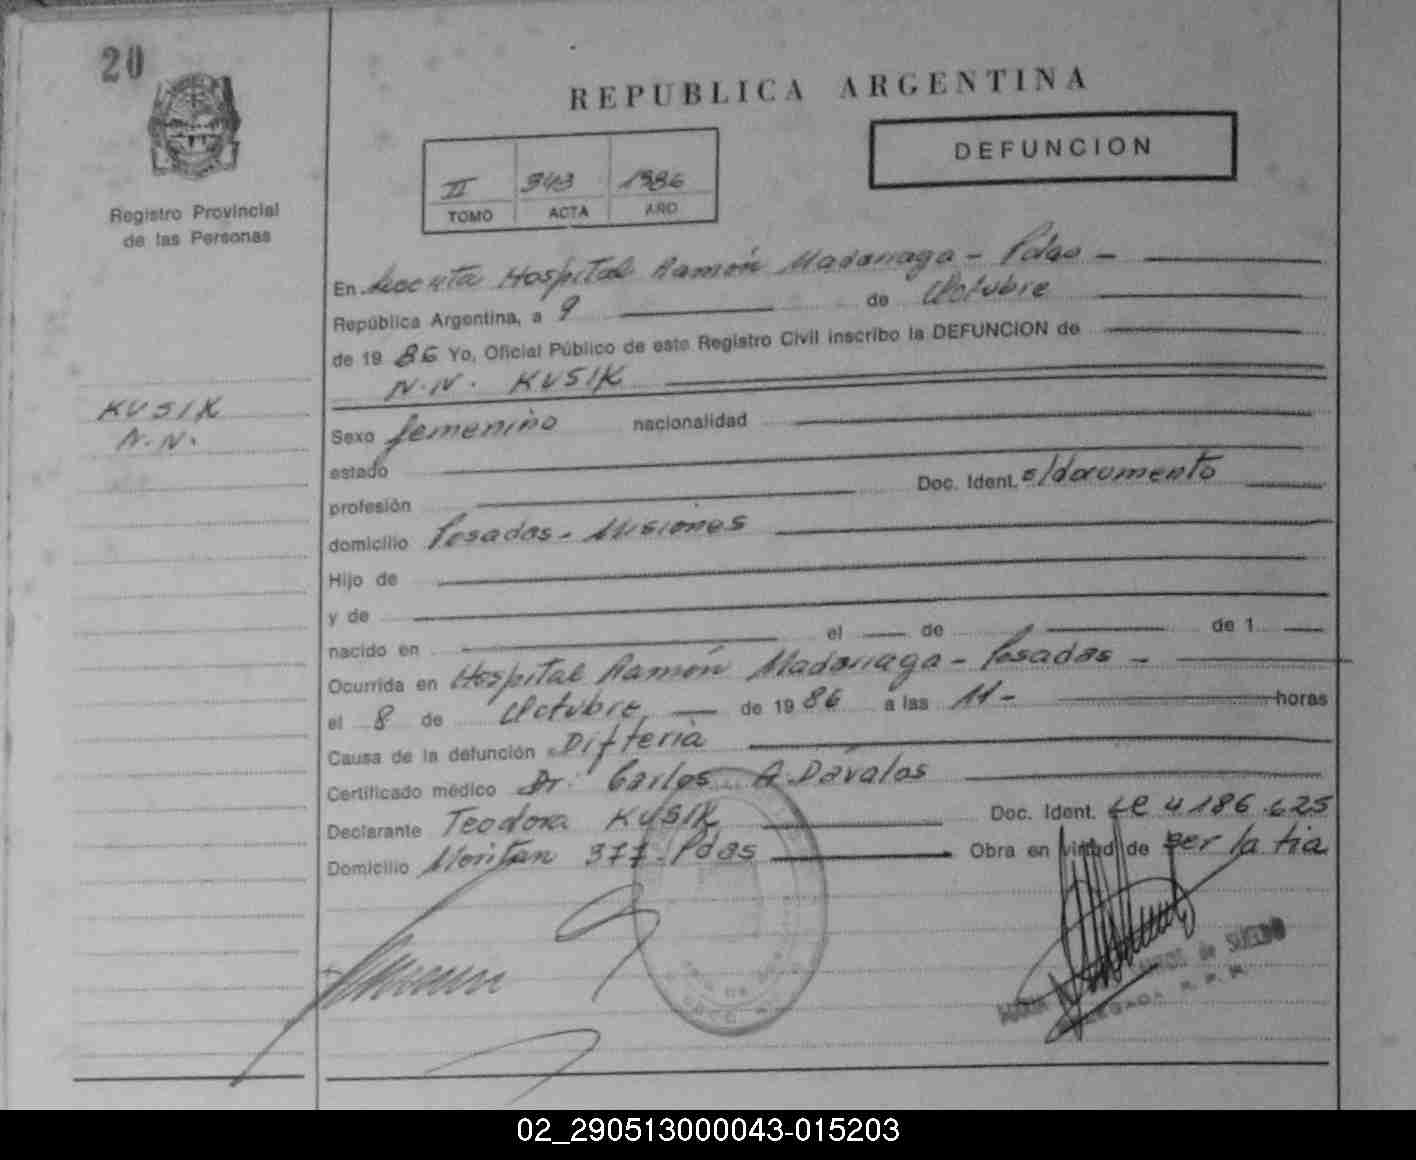 20
REPUBLICA ARGENTINA
DEFUNCION
II 343 1986
TOMO ACTA AÑO
Registro Provincial
de las Personas
En Hospital Ramón Madariaga - Pdas -
República Argentina, a 9 de Octubre
de 19 86 Yo, Oficial Público de este Registro Civil inscribo la DEFUNCION de
N.N. KUSIK
KUSIK
N.N.
Sexo femenino nacionalidad
estado
profesión Doc. Ident. s/documento
domicilio Posadas - Misiones
Hijo de
y de
nacido en el de de 1
Ocurrida en Hospital Ramón Madariaga - Posadas -
el 8 de Octubre de 19 86 a las 11- horas
Causa de la defunción Difteria
Certificado médico Dr. Carlos A. Dávalos
Declarante Teodora KUSIK Doc. Ident. LC 4186.625
Domicilio 377 - Pdas Obra en virtud de ser la tia
02_290513000043-015203